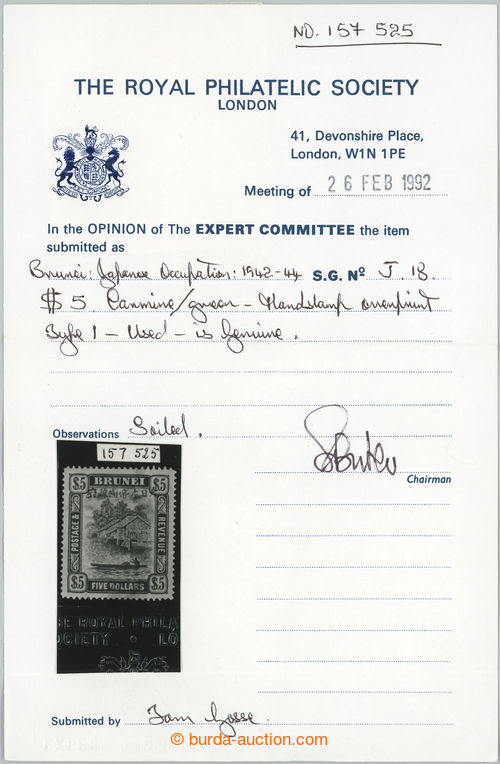 ND. 157 525
THE ROYAL PHILATELIC SOCIETY
LONDON
41, Devonshire Place,
London, W1N 1PE
Meeting of 26 FEB 1992
In the OPINION of The EXPERT COMMITTEE the item
submitted as
Brunei: Japanese Occupation: 1942-44 S.G. Nº J. 18.
$5 Carmine/green - Handstamp overprint
Type 1 - Used - is genuine.
Observations Soiled.
Chairman
157 525
$5 BRUNEI $5
POSTAGE & REVENUE
$5 FIVE DOLLARS $5
HE ROYAL PHILA
OCIETY • LO
Submitted by Tom Gosse.
© burda-auction.com